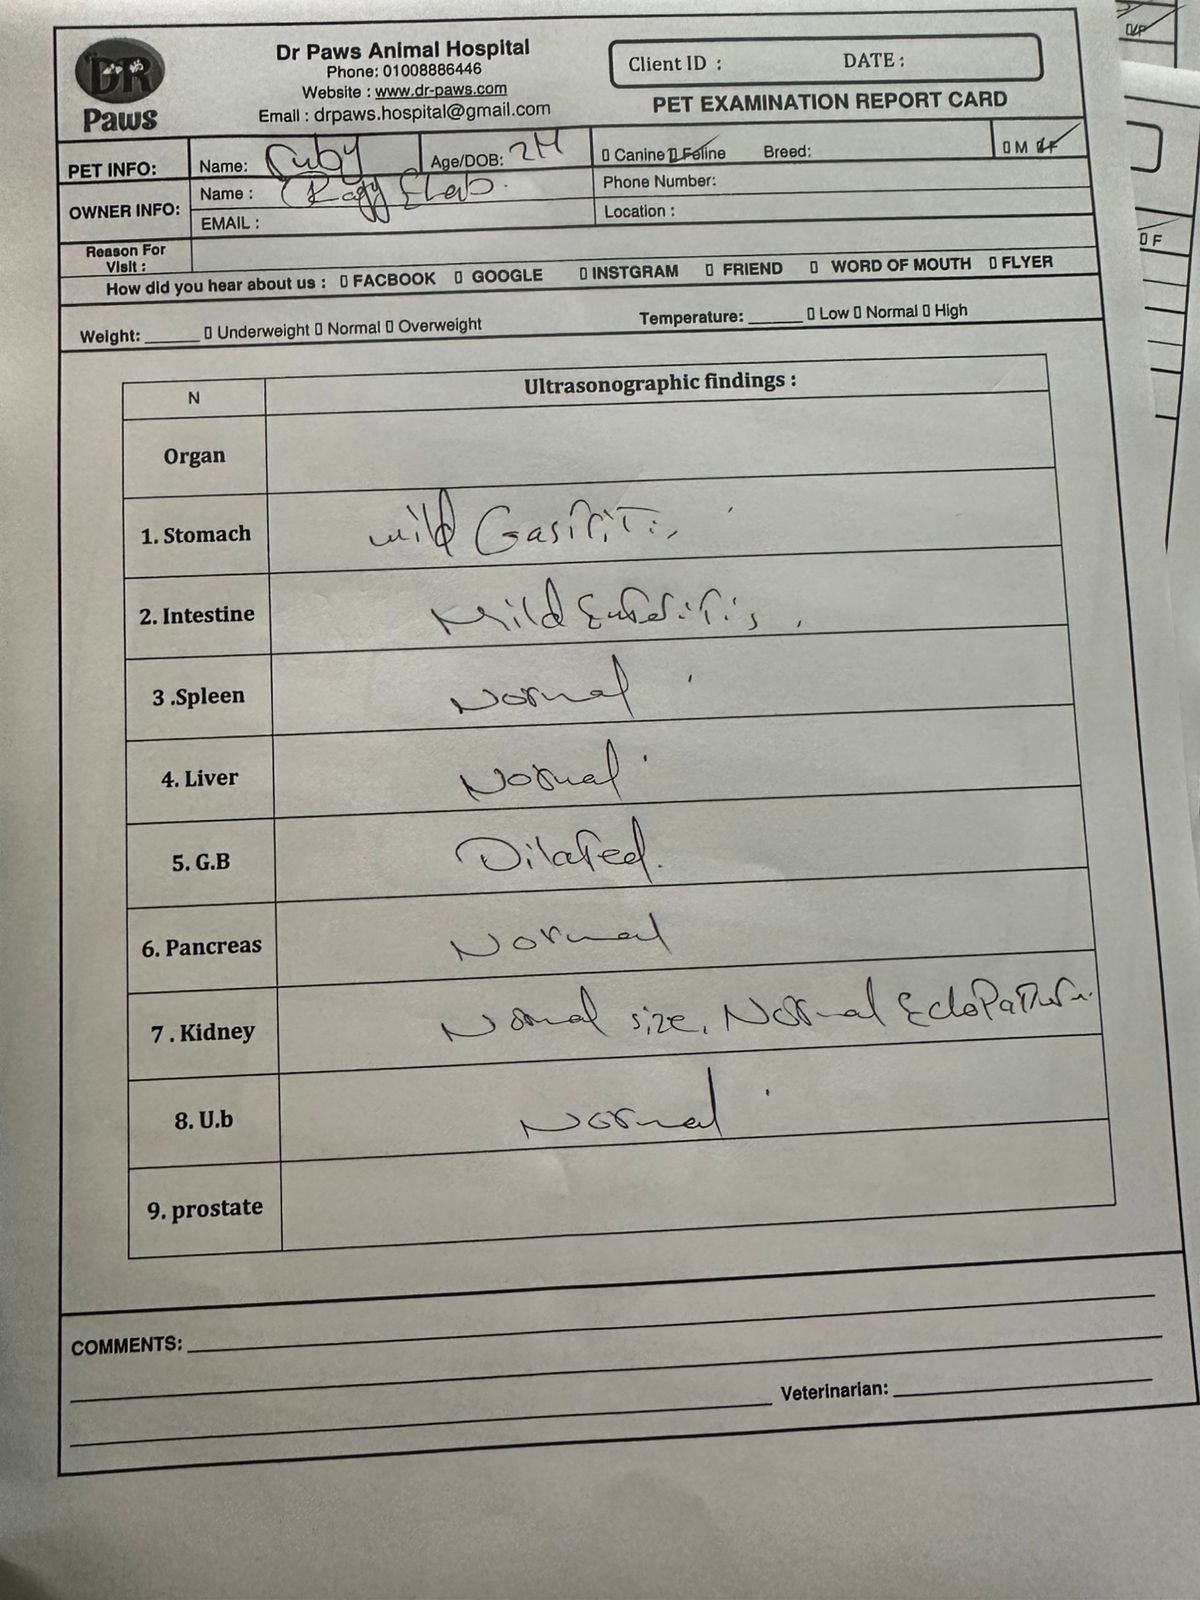 DR
Paws
Dr Paws Animal Hospital
Phone: 01008886446
Website : www.dr-paws.com
Email : drpaws.hospital@gmail.com
Client ID : DATE :
PET EXAMINATION REPORT CARD
PET INFO: Name: Ruby Age/DOB: 2M ▯ Canine ▯ Feline Breed: ▯ M ▯ F
OWNER INFO: Name : Phone Number:
EMAIL : Location :
Reason For Visit :
How did you hear about us : ▯ FACBOOK ▯ GOOGLE ▯ INSTGRAM ▯ FRIEND ▯ WORD OF MOUTH ▯ FLYER
Weight: ______ ▯ Underweight ▯ Normal ▯ Overweight Temperature: ______ ▯ Low ▯ Normal ▯ High
N Ultrasonographic findings :
Organ
1. Stomach mild Gastritis
2. Intestine Mild Enteritis.
3 .Spleen Normal
4. Liver Normal
5. G.B Dilated.
6. Pancreas Normal
7 . Kidney Normal size, Normal
8. U.b Normal
9. prostate
COMMENTS:
Veterinarian:
▯ F